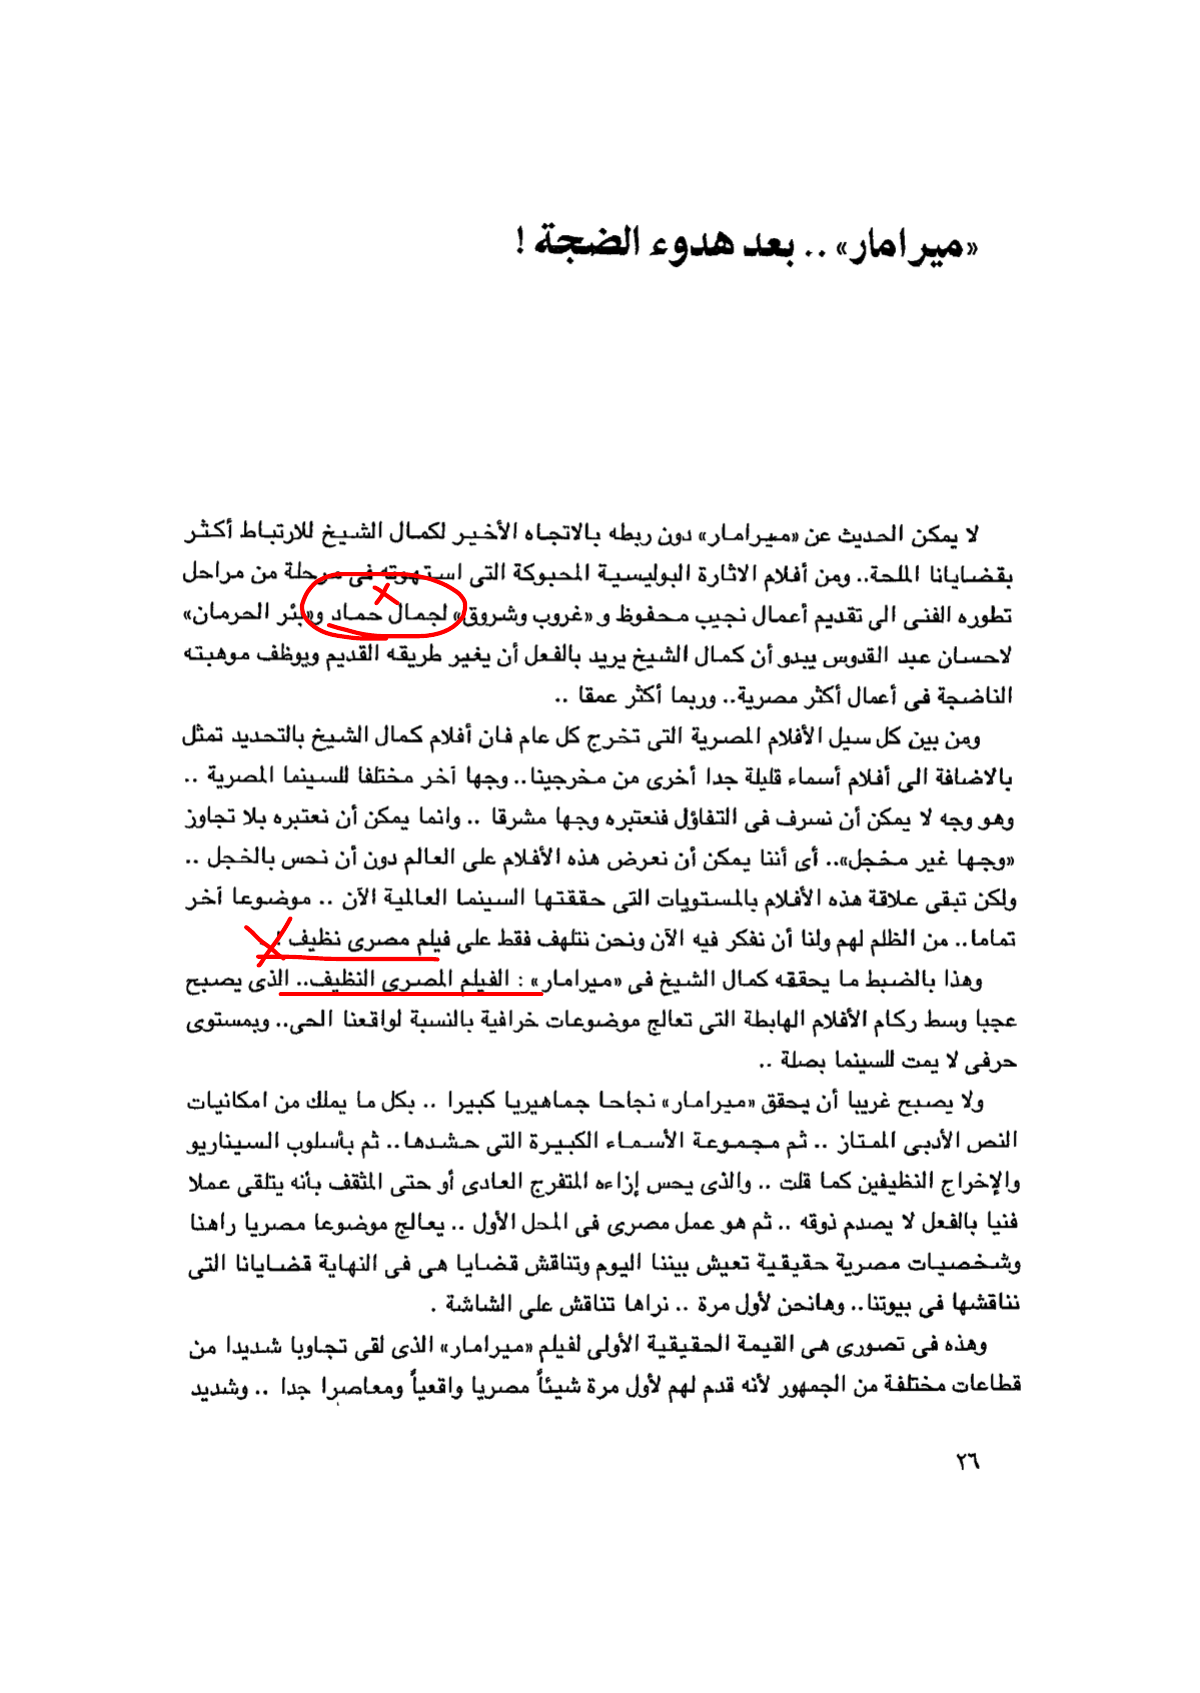 «ميرامار» .. بعد هدوء الضجة !
لا يمكن الحديث عن «ميرامار» دون ربطه بالاتجاه الأخير لكمال الشيخ للارتباط أكثر
بقضايانا الملحة.. ومن أفلام الاثارة البوليسية المحبوكة التى استهوته فى مرحلة من مراحل
تطوره الفنى الى تقديم أعمال نجيب محفوظ و «غروب وشروق» لجمال حماد و«بئر الحرمان»
لاحسان عبد القدوس يبدو أن كمال الشيخ يريد بالفعل أن يغير طريقه القديم ويوظف موهبته
الناضجة فى أعمال أكثر مصرية.. وربما أكثر عمقا ..
ومن بين كل سيل الأفلام المصرية التى تخرج كل عام فان أفلام كمال الشيخ بالتحديد تمثل
بالاضافة الى أفلام أسماء قليلة جدا أخرى من مخرجينا.. وجها آخر مختلفا للسينما المصرية ..
وهو وجه لا يمكن أن نسرف فى التفاؤل فنعتبره وجها مشرقا .. وانما يمكن أن نعتبره بلا تجاوز
«وجها غير مخجل».. أى أننا يمكن أن نعرض هذه الأفلام على العالم دون أن نحس بالخجل ..
ولكن تبقى علاقة هذه الأفلام بالمستويات التى حققتها السينما العالمية الآن .. موضوعا آخر
تماما.. من الظلم لهم ولنا أن نفكر فيه الآن ونحن نتلهف فقط على فيلم مصرى نظيف !
وهذا بالضبط ما يحققه كمال الشيخ فى «ميرامار» : الفيلم المصرى النظيف.. الذى يصبح
عجبا وسط ركام الأفلام الهابطة التى تعالج موضوعات خرافية بالنسبة لواقعنا الحى.. وبمستوى
حرفى لا يمت للسينما بصلة ..
ولا يصبح غريبا أن يحقق «ميرامار» نجاحا جماهيريا كبيرا .. بكل ما يملك من امكانيات
النص الأدبى الممتاز .. ثم مجموعة الأسماء الكبيرة التى حشدها.. ثم بأسلوب السيناريو
والإخراج النظيفين كما قلت .. والذى يحس إزاءه المتفرج العادى أو حتى المثقف بأنه يتلقى عملا
فنيا بالفعل لا يصدم ذوقه .. ثم هو عمل مصرى فى المحل الأول .. يعالج موضوعا مصريا راهنا
وشخصيات مصرية حقيقية تعيش بيننا اليوم وتناقش قضايا هى فى النهاية قضايانا التى
نناقشها فى بيوتنا.. وهانحن لأول مرة .. نراها تناقش على الشاشة .
وهذه فى تصورى هى القيمة الحقيقية الأولى لفيلم «ميرامار» الذى لقى تجاوبا شديدا من
قطاعات مختلفة من الجمهور لأنه قدم لهم لأول مرة شيئاً مصريا واقعياً ومعاصرا جدا .. وشديد
٢٦